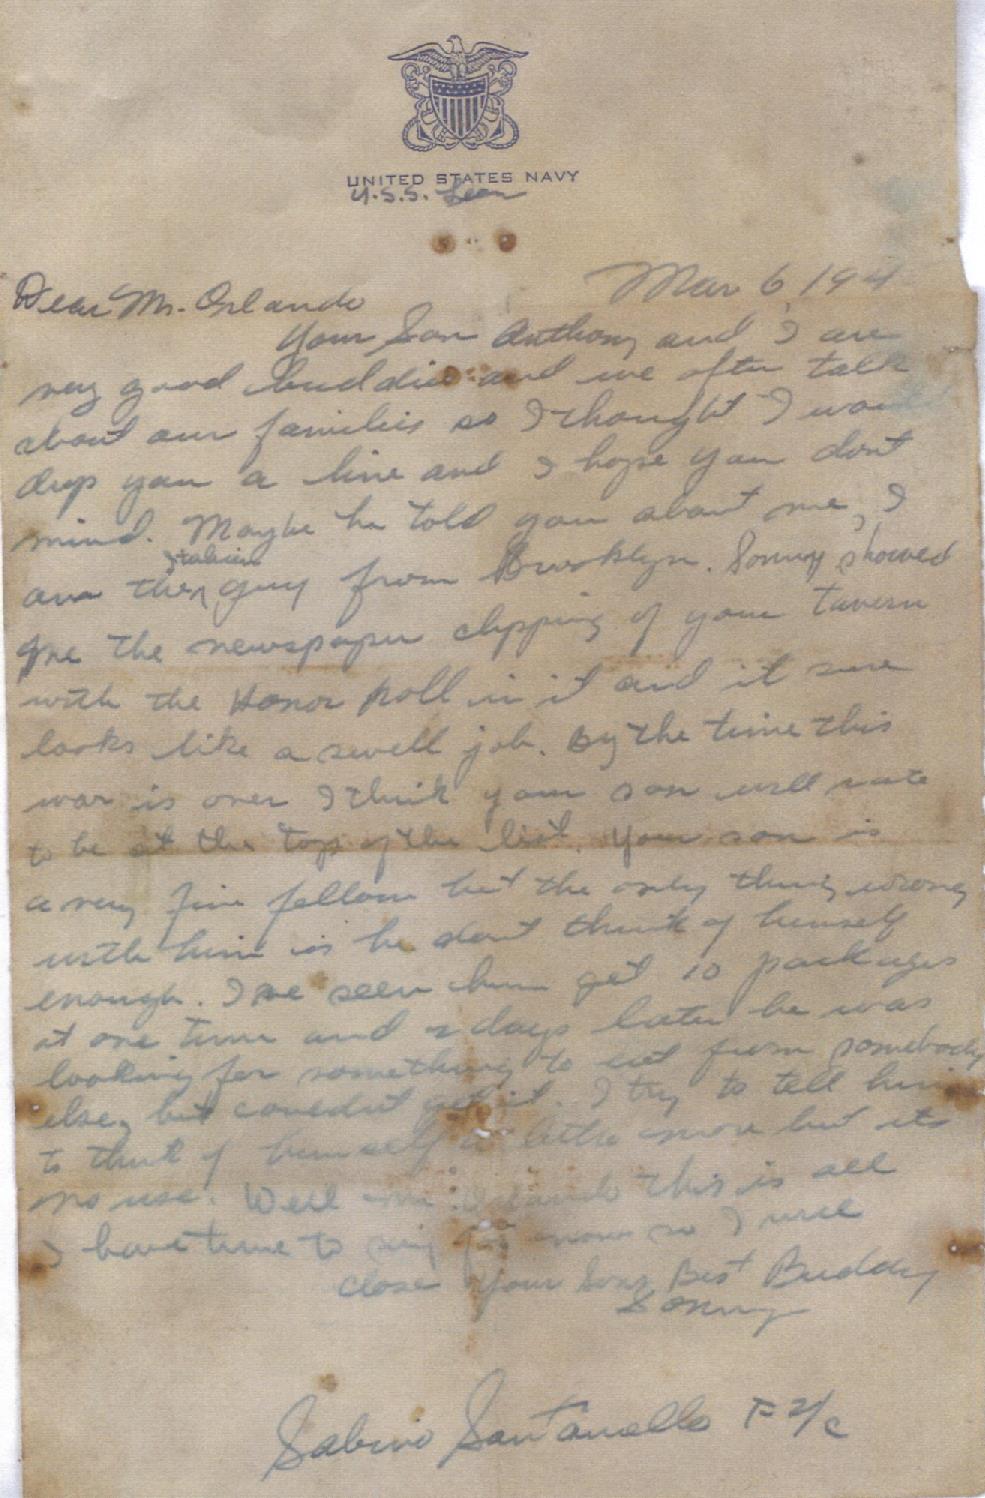 UNITED STATES NAVY
U.S.S. Leon
Mar 6, 194
Dear Mr. Orlando
Your Son Anthony and I are
very good buddies and we often talk
about our families so I thought I would
drop you a line and I hope you dont
mind. Maybe he told you about me, I
am the Italian guy from Brooklyn. Sonny showed
me the newspaper clipping of your tavern
with the Honor Roll in it and it sure
looks like a swell job. By the time this
war is over I think your son will rate
to be at the top of the list. Your son is
a very fine fellow but the only thing wrong
with him is he dont think of himself
enough. I've seen him get 10 packages
at one time and 2 days later he was
looking for something to eat from somebody
else, but couldnt get it. I try to tell him
to think of himself a little more but its
no use. Well Mr. Orlando this is all
I have time to say for now so I will
close Your Sons Best Buddy
Sonny
Sabino Santanello F 2/c